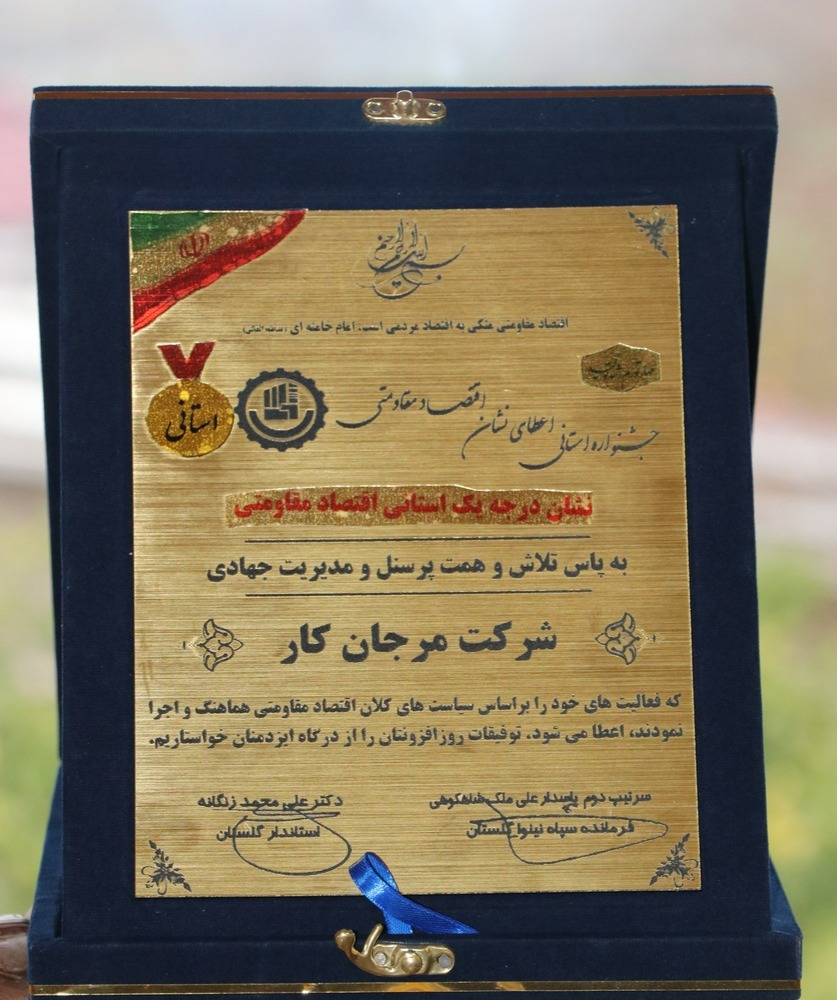 بسم الله الرحمن الرحیم
اقتصاد مقاومتی متکی به اقتصاد مردمی است. امام خامنه ای
جشنواره استانی اعطای نشان اقتصاد مقاومتی
استانی
نشان درجه یک استانی اقتصاد مقاومتی
به پاس تلاش و همت پرسنل و مدیریت جهادی
شرکت مرجان کار
که فعالیت های خود را براساس سیاست های کلان اقتصاد مقاومتی هماهنگ و اجرا
نمودند، اعطا می شود. توفیقات روزافزونتان را از درگاه ایزدمنان خواستاریم.
سرتیپ دوم پاسدار علی ملک شاهکوهی
فرمانده سپاه نینوا گلستان
دکتر علی محمد زنگانه
استاندار گلستان